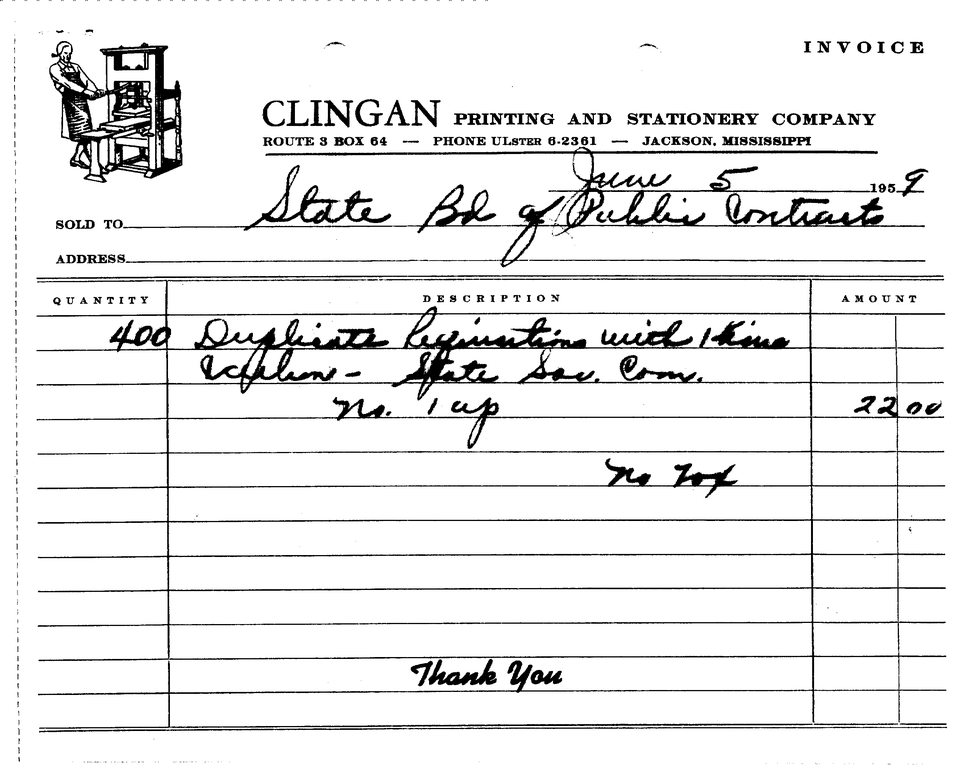 INVOICE
CLINGAN PRINTING AND STATIONERY COMPANY
ROUTE 3 BOX 64 — PHONE ULSTER 6-2361 — JACKSON, MISSISSIPPI
June 5 1959
SOLD TO State Bd of Public Contracts
ADDRESS
QUANTITY DESCRIPTION AMOUNT
400 Duplicate Requisitions with 1
– State Sov. Com.
No. 1 up 22 00
No Tax
Thank You